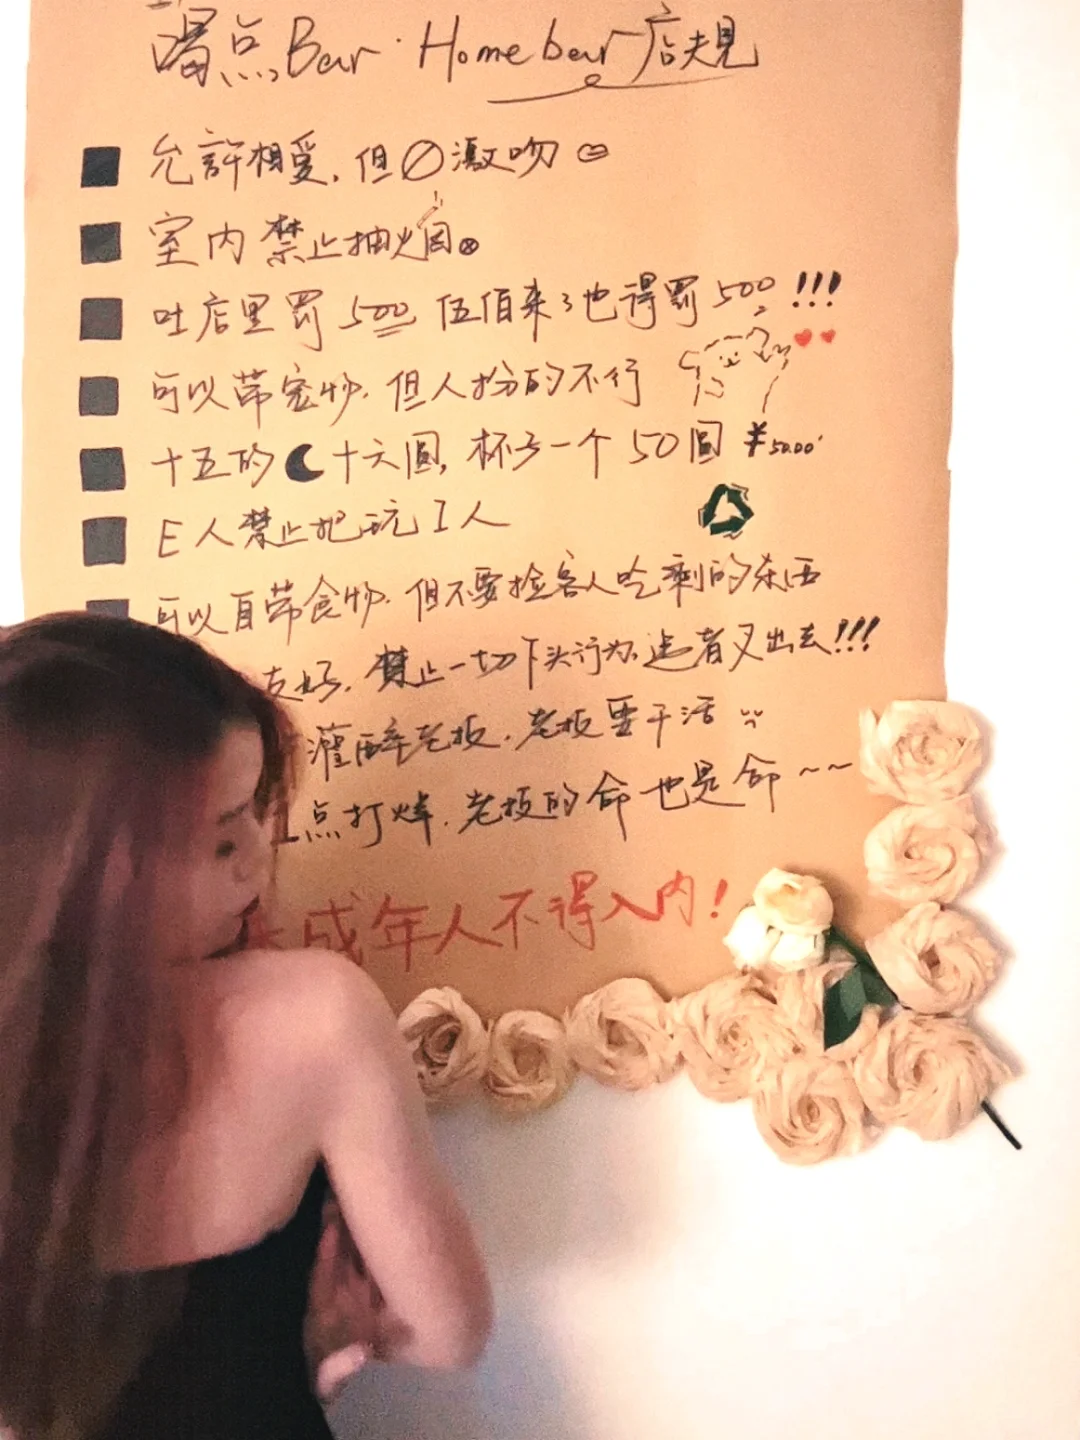 喝点Bar·Homebar店規
允許相愛,但∅激吻
室内禁止抽烟。
吐店里罰500 伍佰来了也得罰500!!!
可以带宠物,但人扮的不行
十五的🌙十六圓,杯子一个50圓 ¥50.00
E人禁止把玩I人
可以自带食物,但不要捡客人吃剩的东西
友好,禁止一切下头行为,违者叉出去!!!
灌醉老板,老板要干活
点打烊,老板的命也是命~~
成年人不得入内!